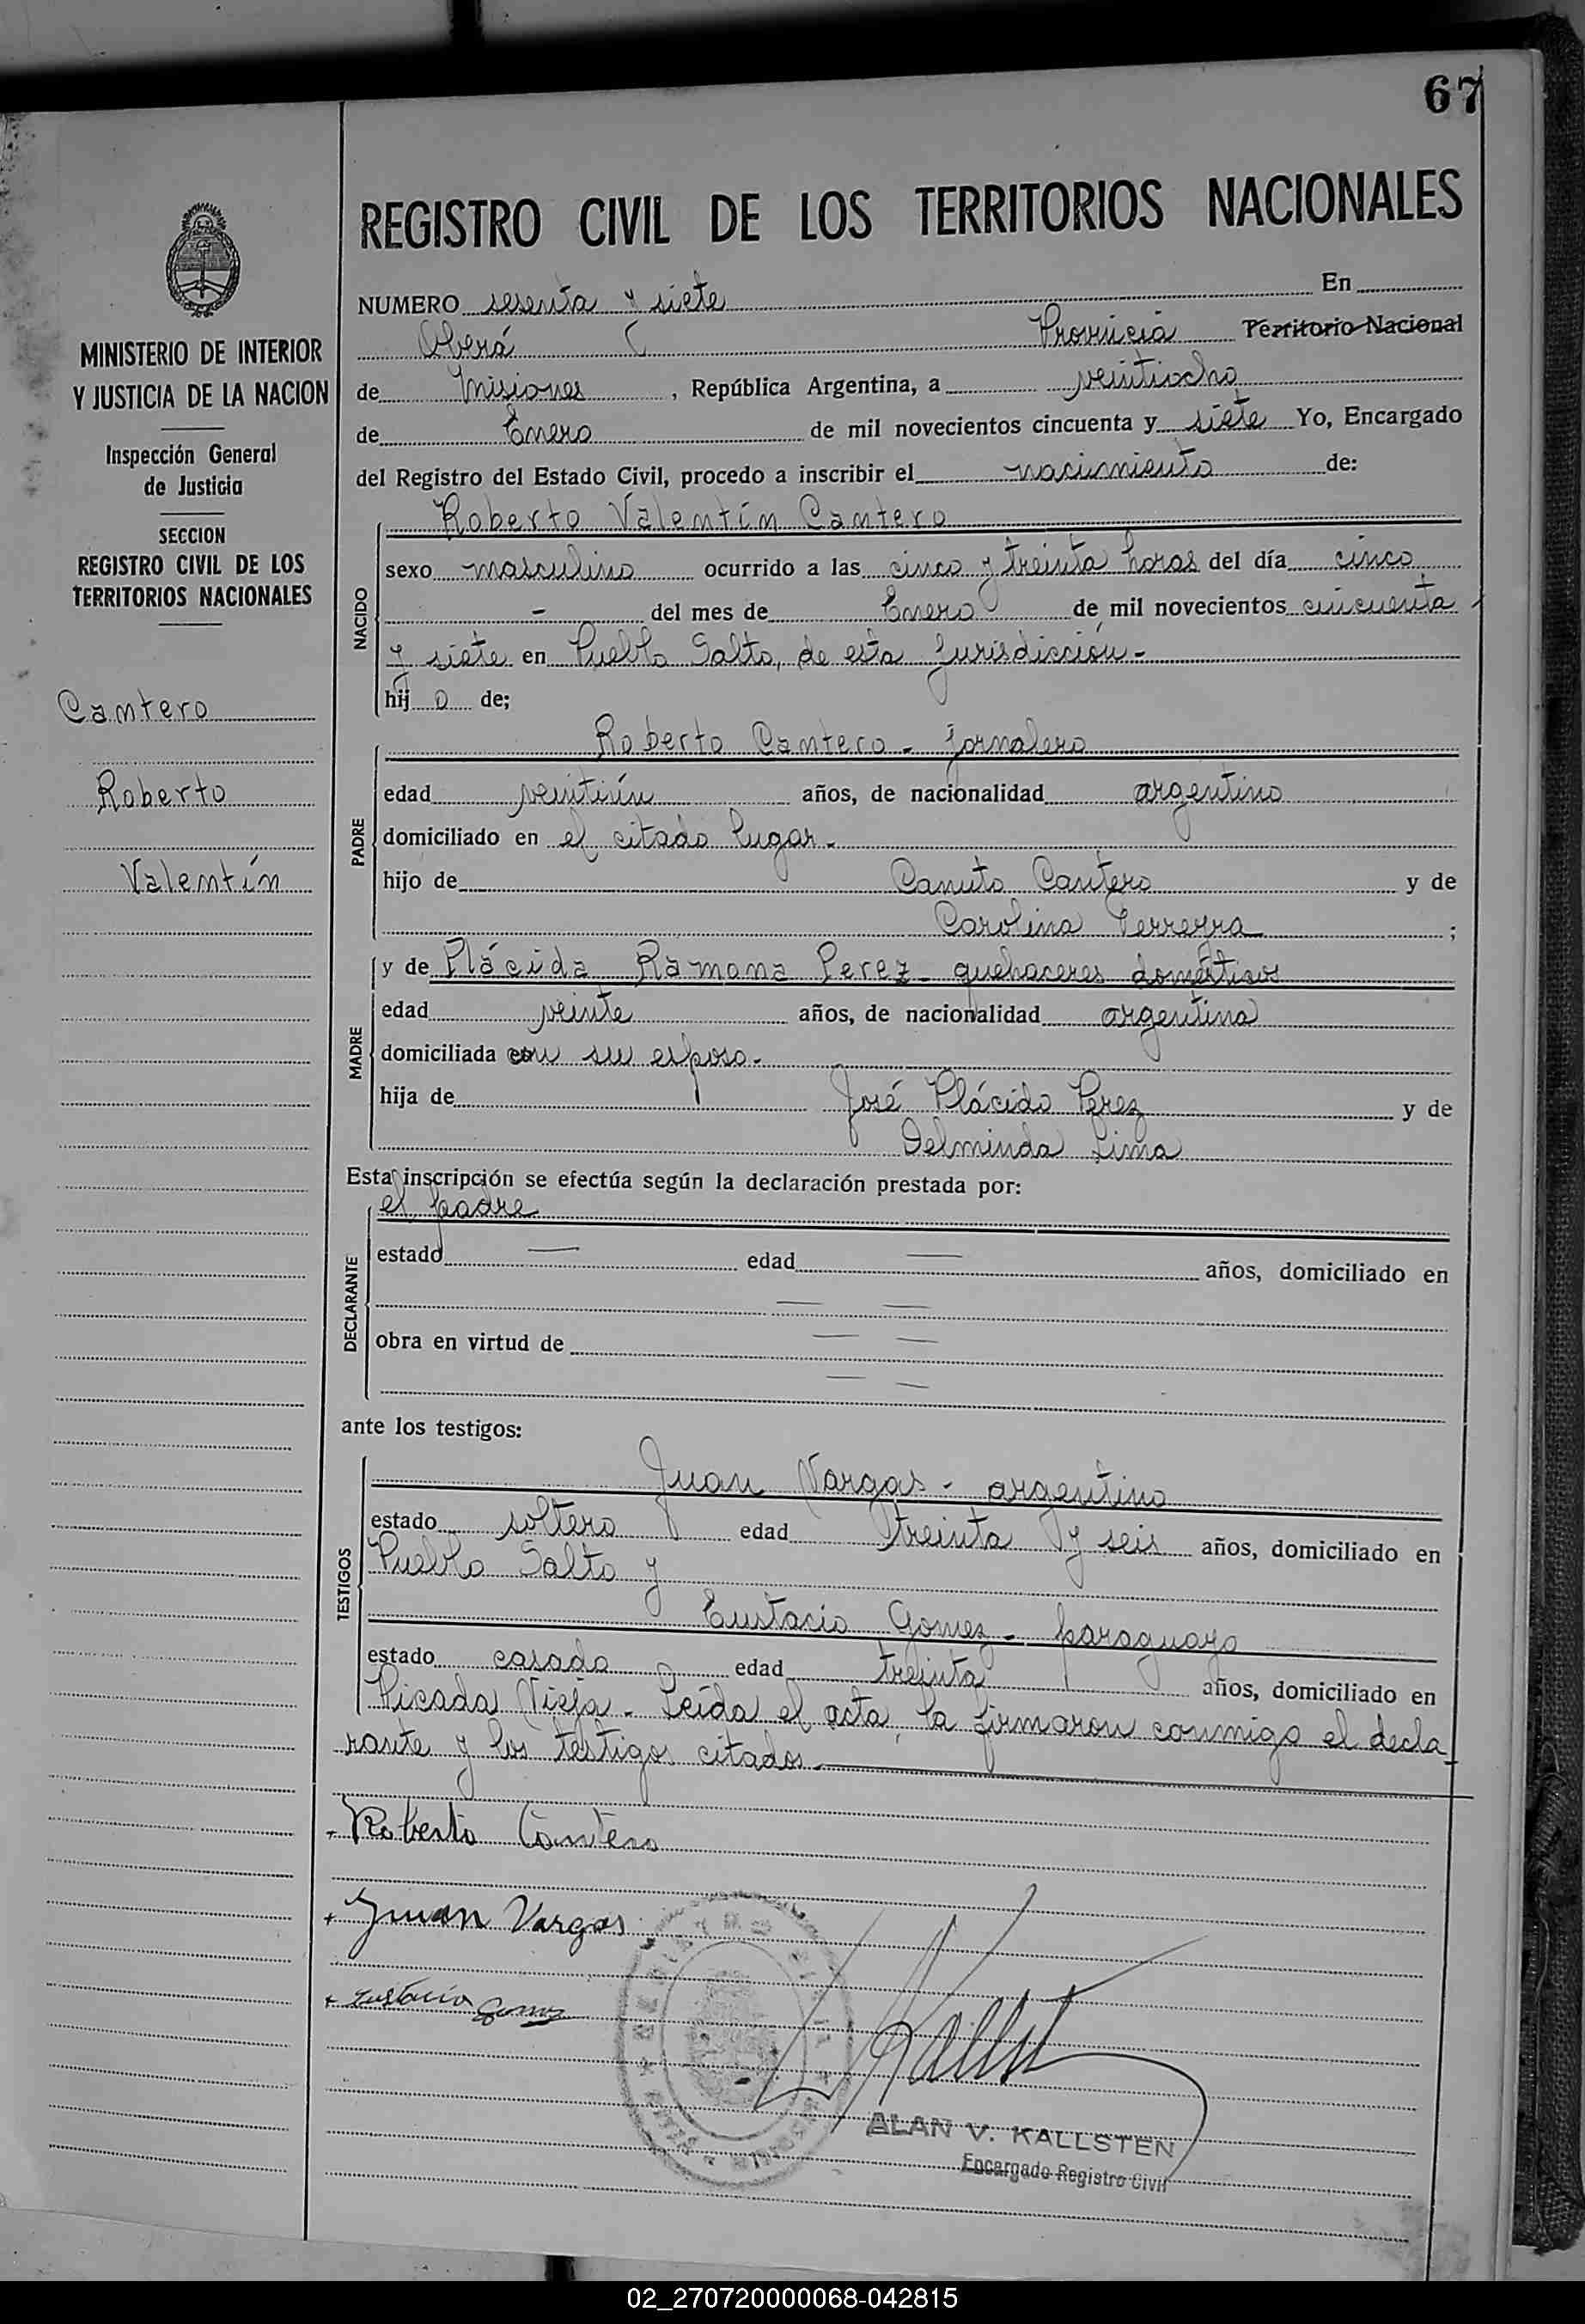 67
REGISTRO CIVIL DE LOS TERRITORIOS NACIONALES
MINISTERIO DE INTERIOR
Y JUSTICIA DE LA NACION
Inspección General
de Justicia
SECCION
REGISTRO CIVIL DE LOS
TERRITORIOS NACIONALES
Cantero
Roberto
Valentín
NUMERO sesenta y siete En
Oberá Provincia Territorio Nacional
de Misiones, República Argentina, a veintiocho
de Enero de mil novecientos cincuenta y siete Yo, Encargado
del Registro del Estado Civil, procedo a inscribir el nacimiento de:
NACIDO
Roberto Valentín Cantero
sexo masculino ocurrido a las cinco y treinta horas del día cinco
- del mes de Enero de mil novecientos cincuenta
y siete en Pueblo Salto, de esta Jurisdicción.-
hijo de;
PADRE
Roberto Cantero - jornalero
edad veintiún años, de nacionalidad argentino
domiciliado en el citado lugar.-
hijo de Canuto Cantero y de
Carolina Ferreyra ;
MADRE
y de Plácida Ramona Perez - quehaceres domésticos
edad veinte años, de nacionalidad argentina
domiciliada con su esposo.-
hija de José Plácido Perez y de
Delminda Lima
Esta inscripción se efectúa según la declaración prestada por:
DECLARANTE
el padre
estado — edad — años, domiciliado en
— —
obra en virtud de — —
— —
ante los testigos:
TESTIGOS
Juan Vargas - argentino
estado soltero edad treinta y seis años, domiciliado en
Pueblo Salto y
Eustacio Gomez - paraguayo
estado casado edad treinta años, domiciliado en
Picada Vieja.- Leída el acta, la firmaron conmigo el decla-
rante y los testigos citados.-
Roberto Cantero
+ Juan Vargas
+ Eustacio Gomez
Kallst
ALAN V. KALLSTEN
Encargado Registro Civil
02_270720000068-042815